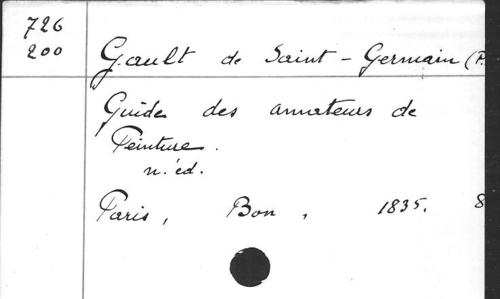 726
200
Gault de Saint-Germain (P.
Guide des amateurs de
Peinture.
n. éd.
Paris, Bon, 1835. 8